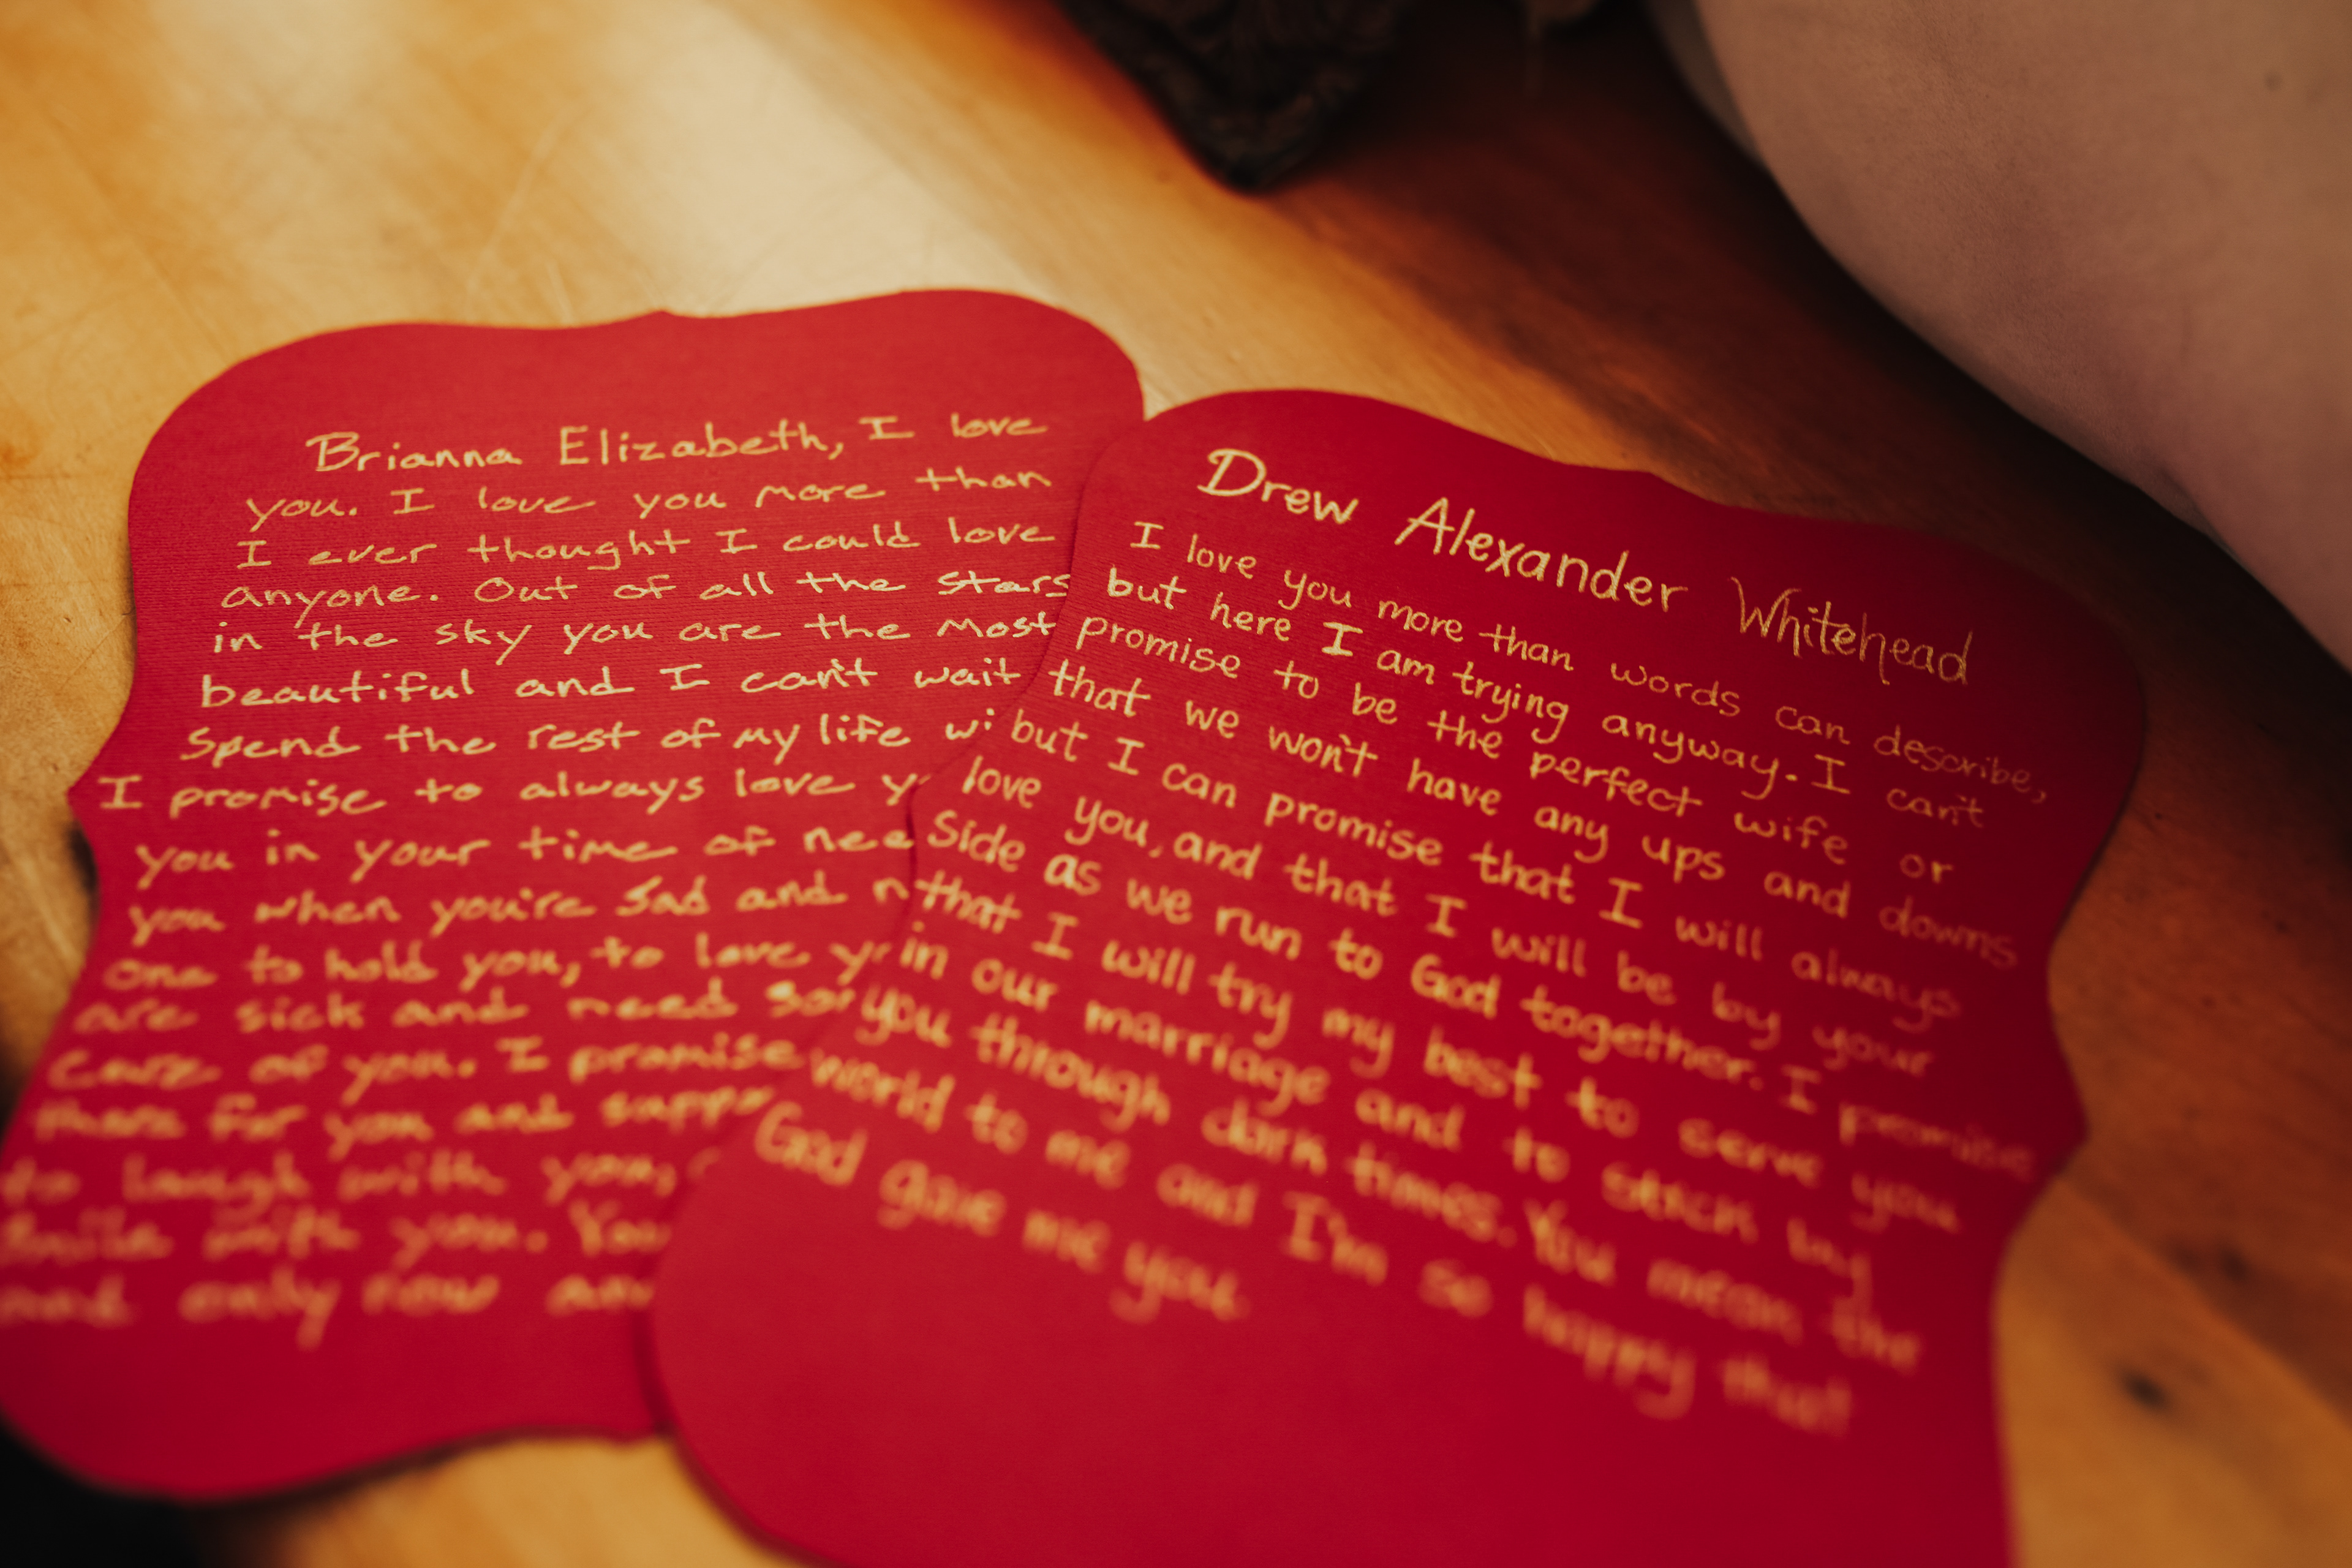 Brianna Elizabeth, I love
you. I love you more than
I ever thought I could love
anyone. Out of all the stars
in the sky you are the most
beautiful and I can't wait
Spend the rest of my life
I promise to always love
you in your time of
you when you're sad and
one to hold you, to love
are sick and need
care of you. I promise
there for you and
to laugh with you,
smile with you. You
and only now and
Drew Alexander Whitehead
I love you more than words can describe,
but here I am trying anyway. I can't
promise to be the perfect wife or
that we won't have any ups and downs
but I can promise that I will always
love you, and that I will be by your
Side as we run to God together. I promise
that I will try my best to serve you
in our marriage and to stick by
you through dark times. You mean the
world to me and I'm so happy that
God gave me you